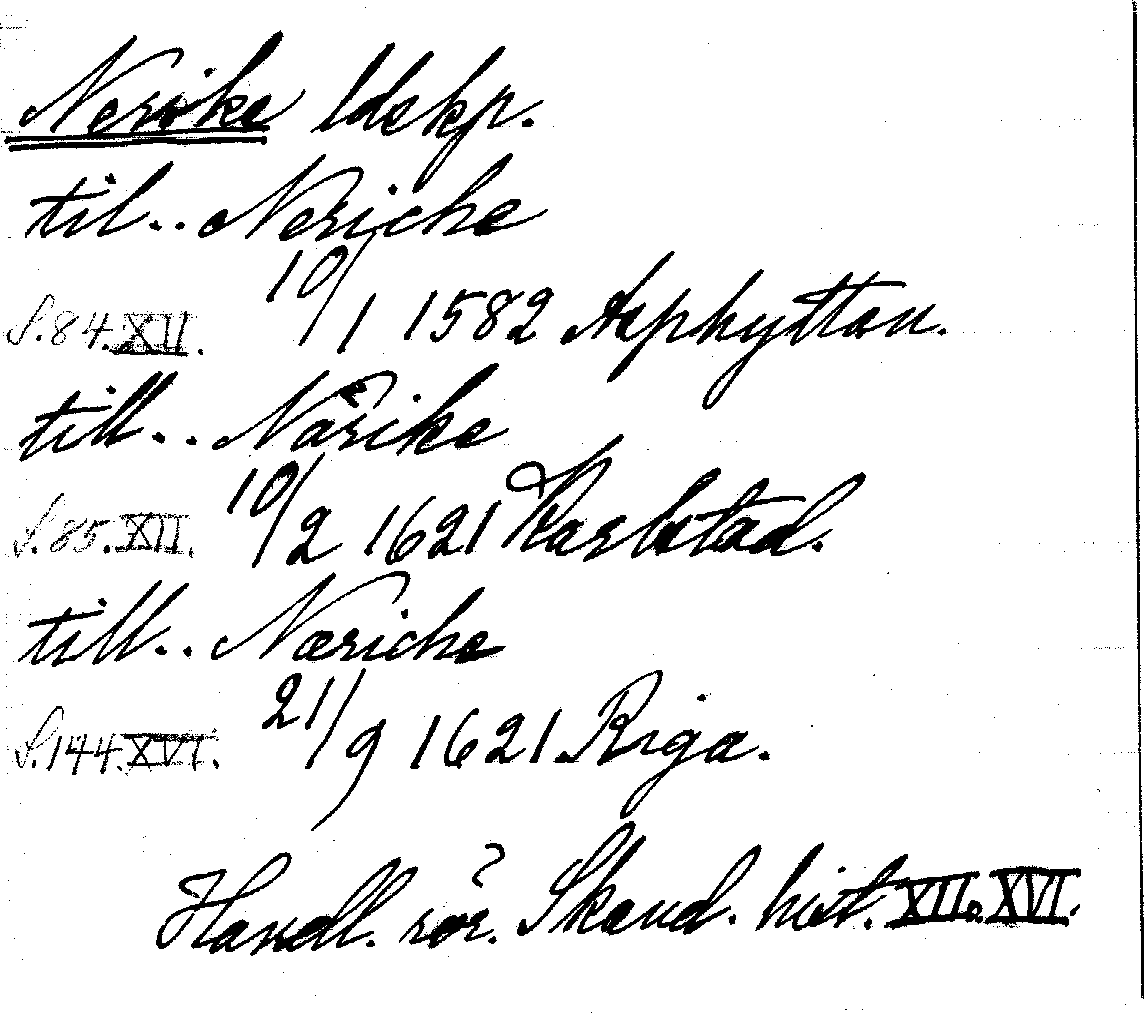 Nerike ldskp.
til.. Neriche
S. 84. XII. 10/1 1582 Asphyttan.
till.. Närike
S. 85. XII. 10/2 1621 Karlstad.
till.. Næriche
S. 144. XVI. 21/9 1621. Riga.
Handl. rör. Skand. hist. XII. XVI.